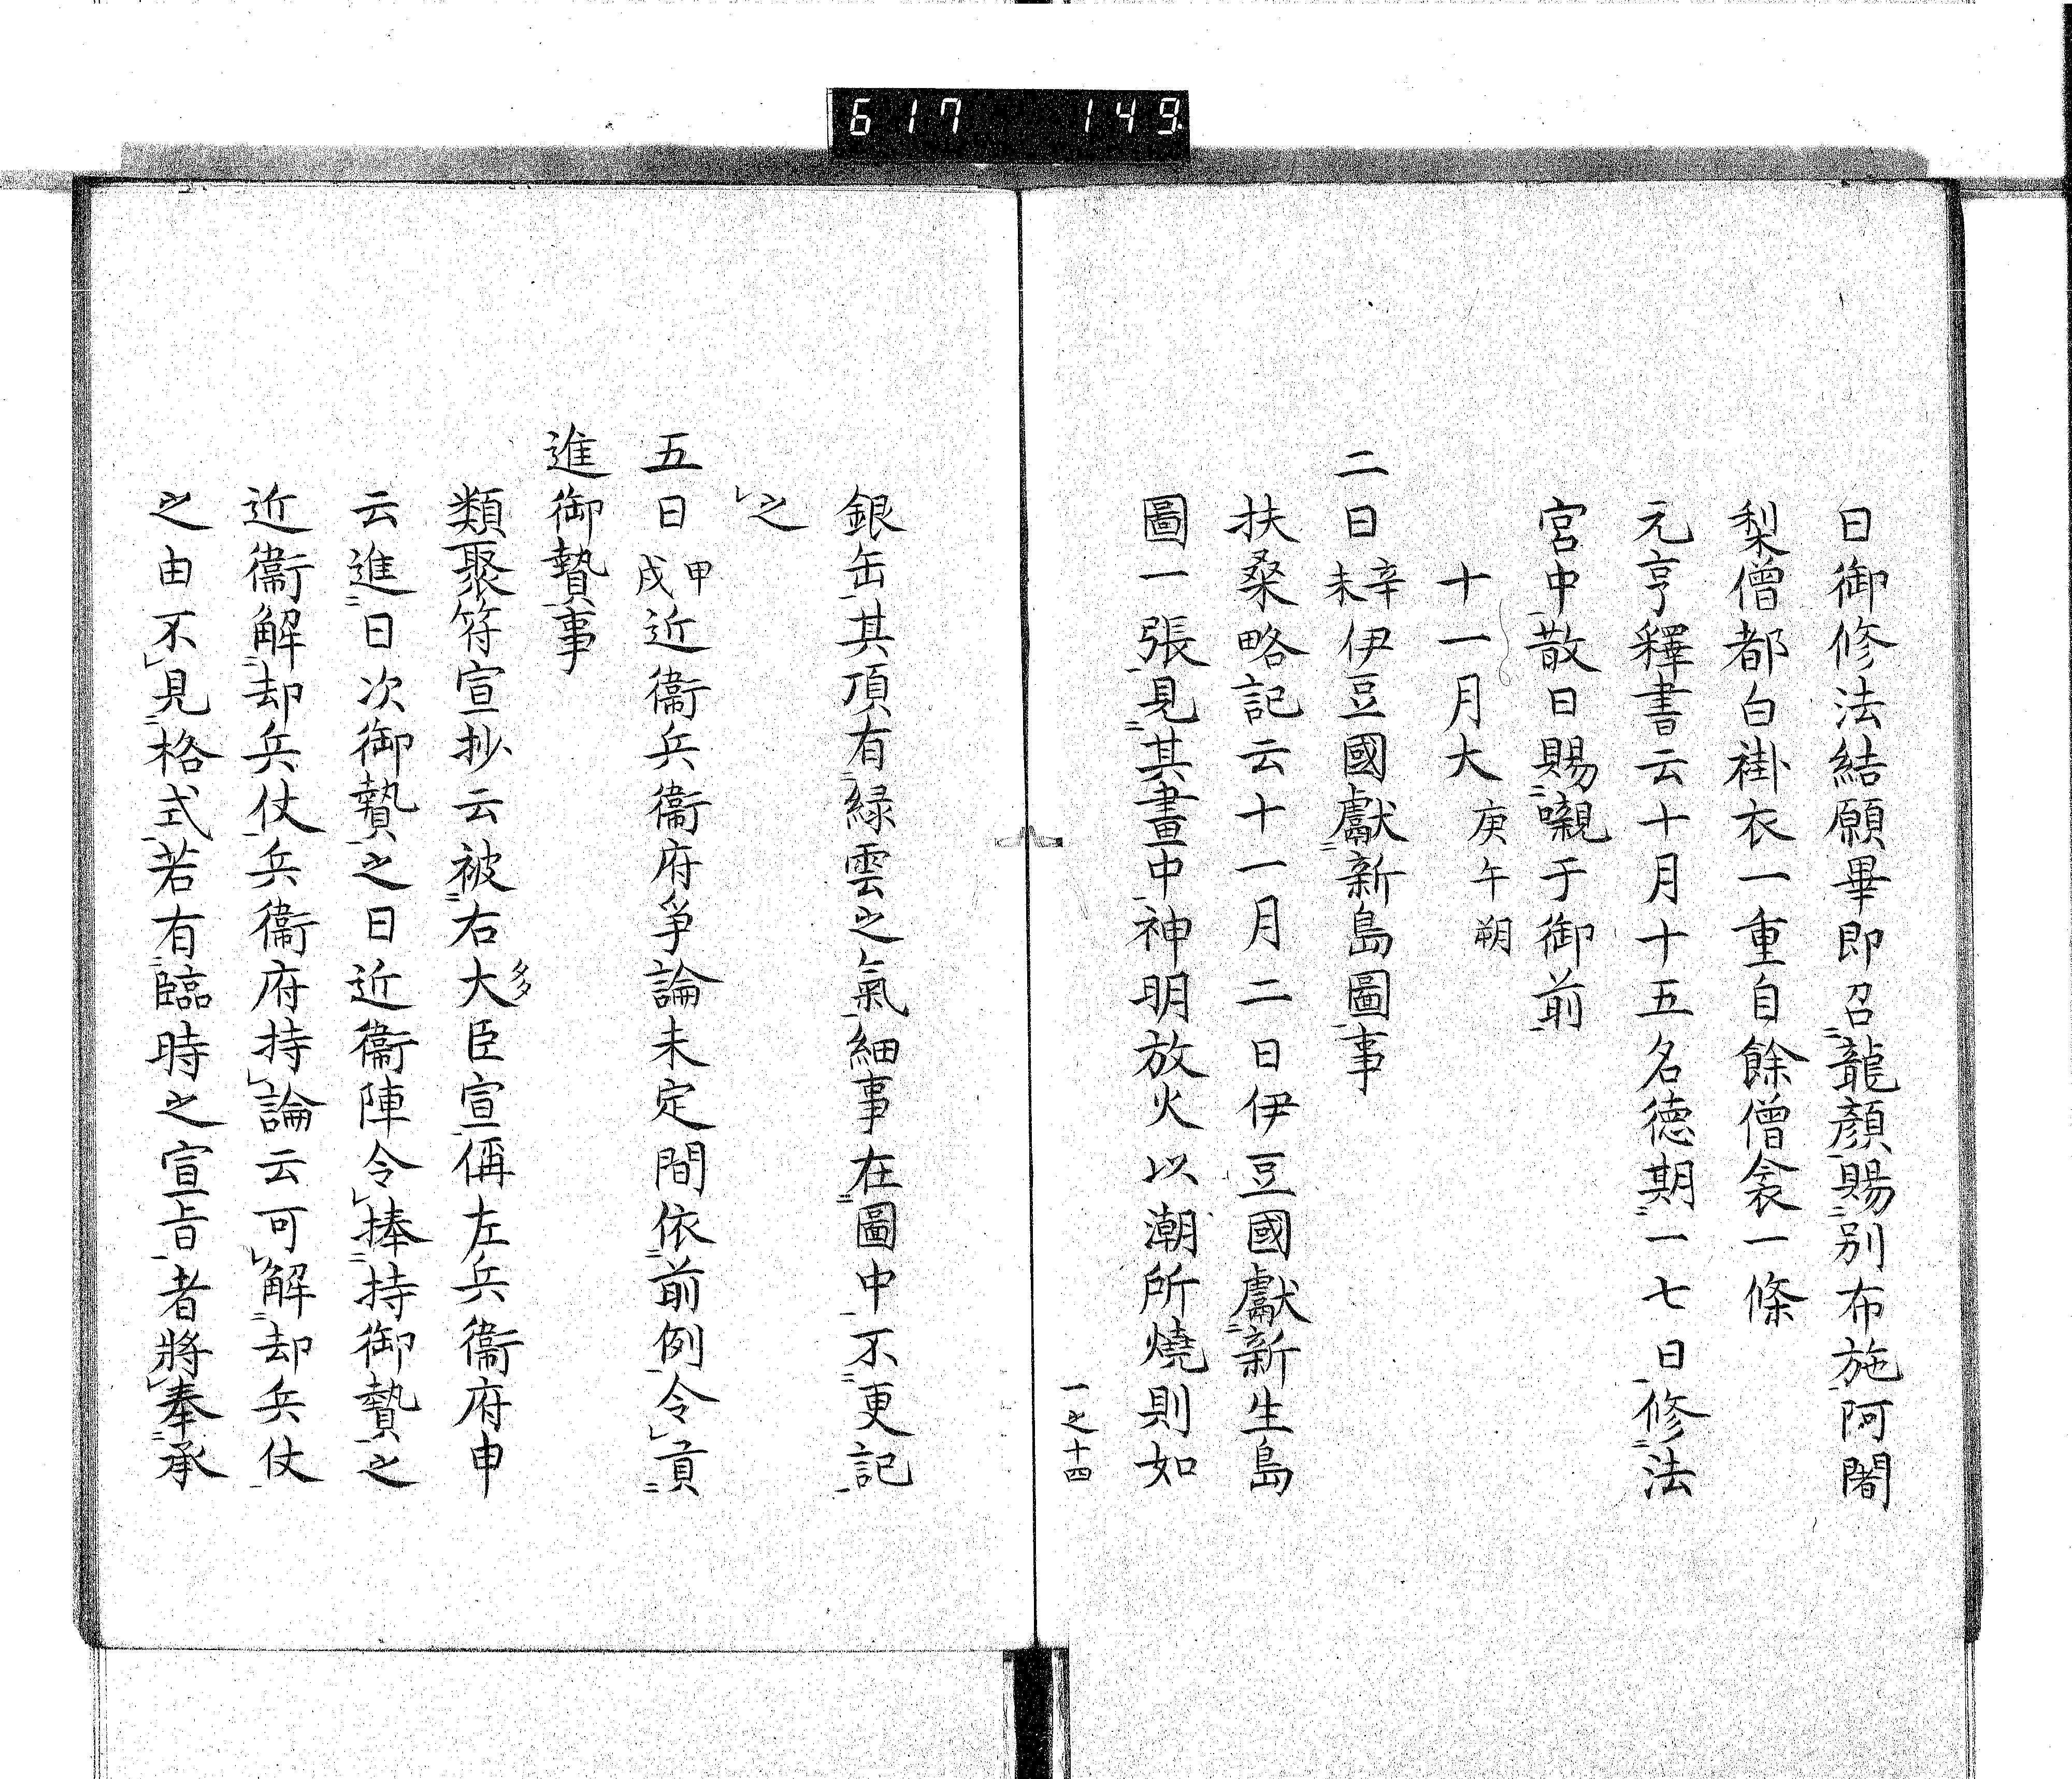 617 149
日御修法結願畢即召龍顏賜別布施阿闍
梨僧都白褂衣一重自餘僧衾一條
元亨釋書云十月十五名德期一七日修法
宮中散日賜嚫于御前
十一月大庚午朔
二日辛未伊豆國獻新島圖事
扶桑略記云十一月二日伊豆國獻新生島
圖一張見其畫中神明放火以潮所燒則如
一之十四
銀缶其頂有緑雲之氣細事在圖中不更記
之
五日甲戌近衞兵衞府爭論未定間依前例令貢
進御贄事
類聚符宣抄云被右大臣宣偁左兵衞府申
多
云進日次御贄之日近衞陣令捧持御贄之
近衞解却兵仗兵衞府持論云可解却兵仗
之由不見格式若有臨時之宣旨者將奉承